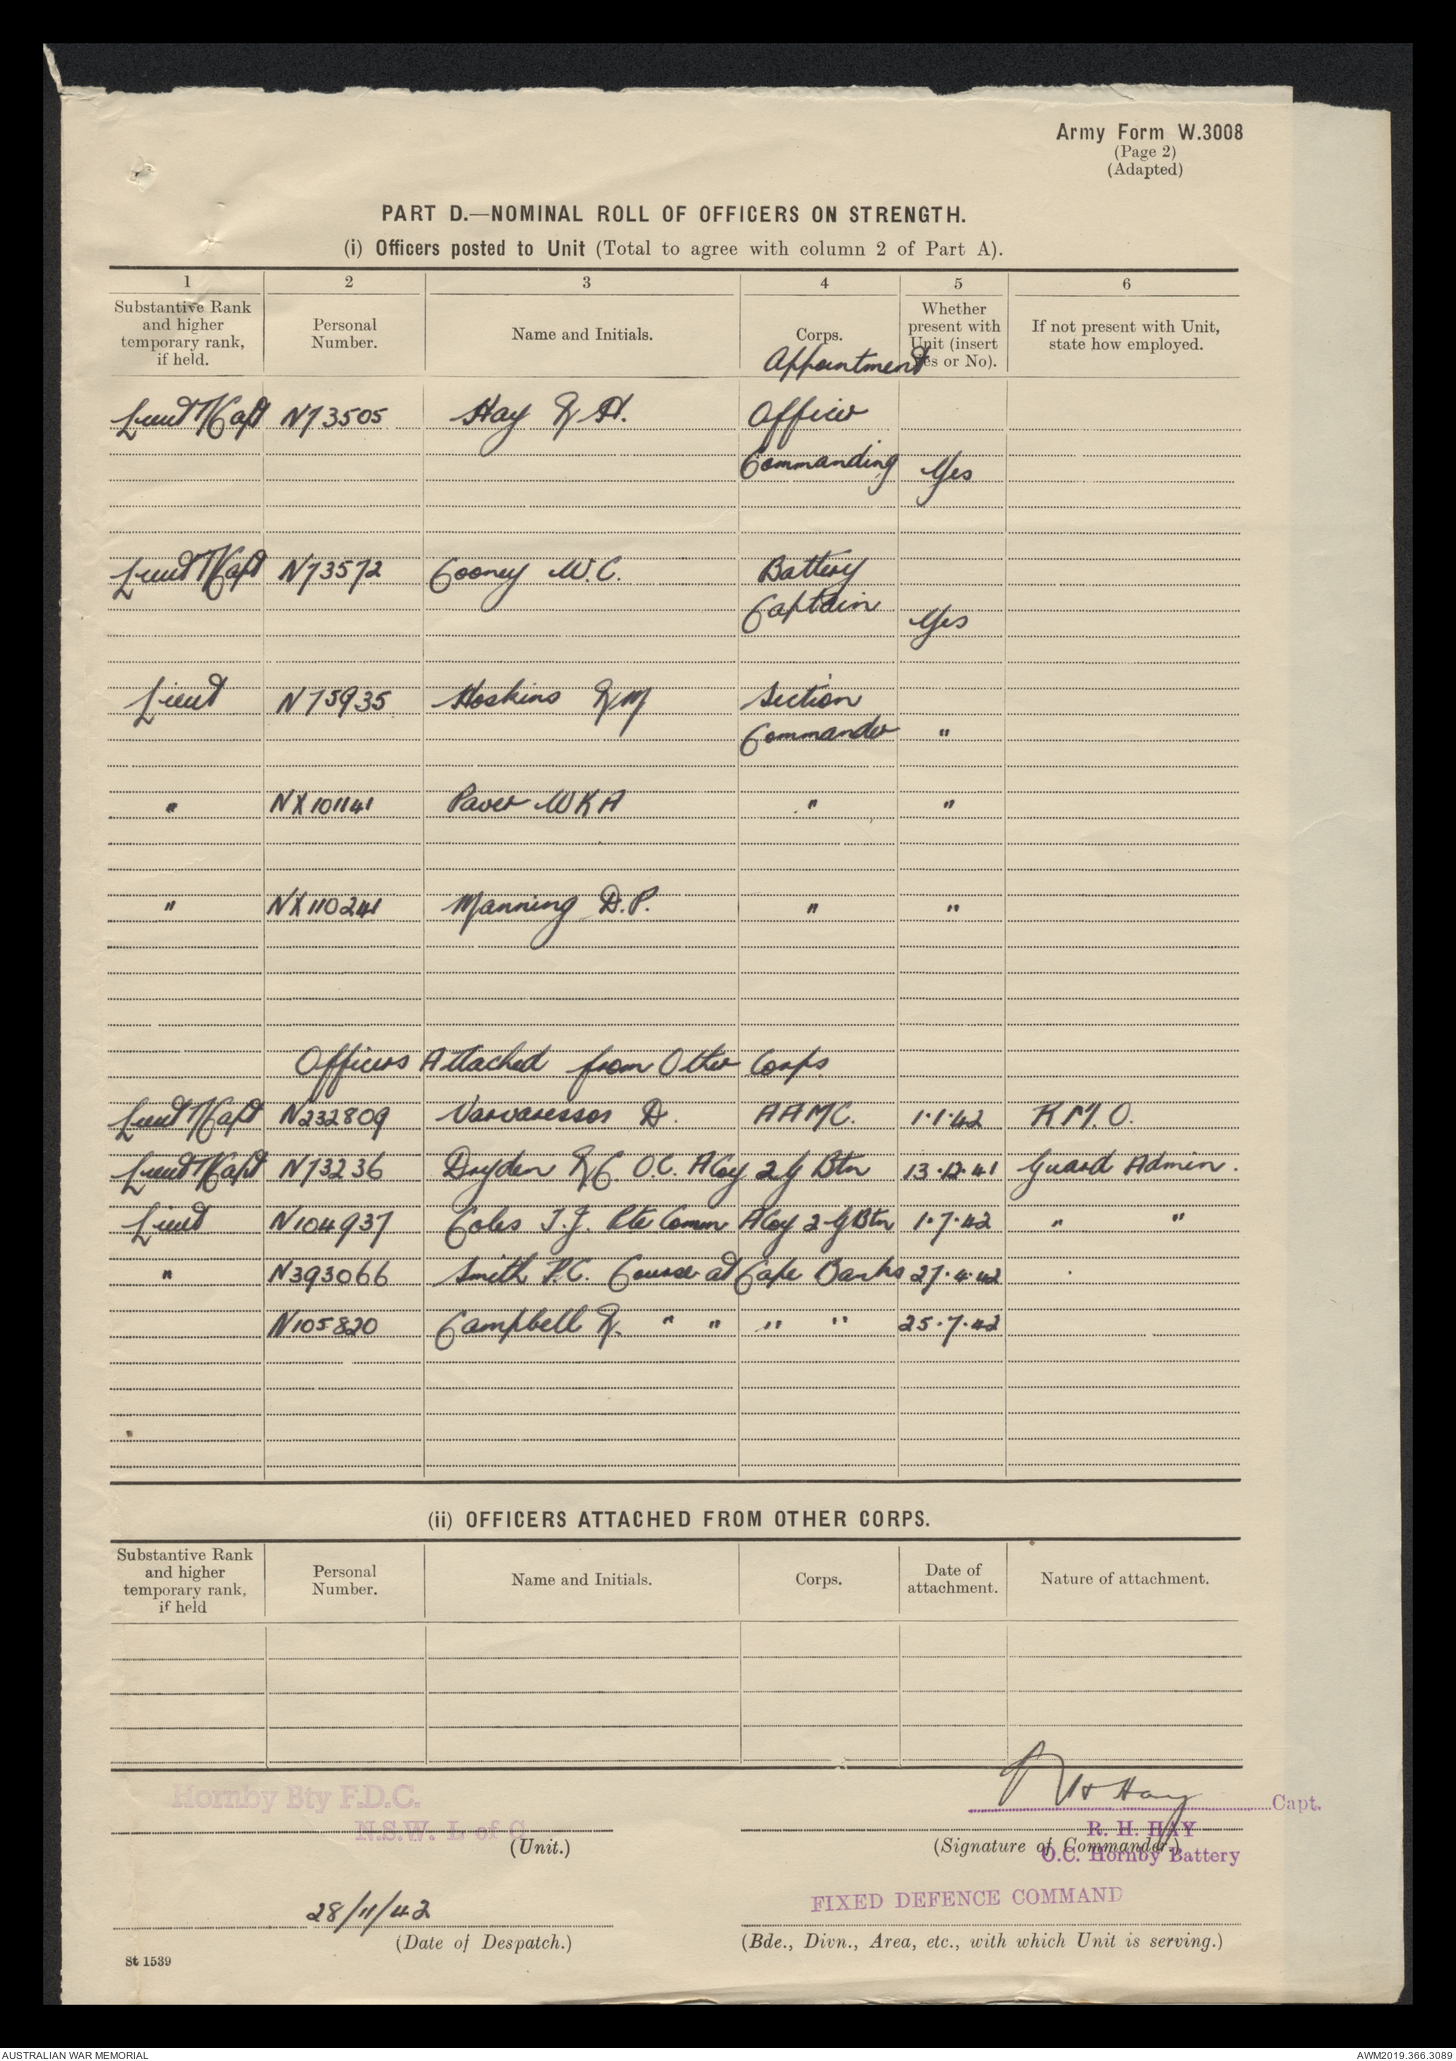 Army Form W.3008
(Page 2)
(Adapted)
PART D.—NOMINAL ROLL OF OFFICERS ON STRENGTH.
(i) Officers posted to Unit (Total to agree with column 2 of Part A).
1 2 3 4 5 6
Substantive Rank and higher temporary rank, if held. Personal Number. Name and Initials. Corps. Whether present with Unit (insert Yes or No). If not present with Unit, state how employed.
Appointment
Lieut T/Capt N73505 Hay R H. Officer
Commanding Yes
Lieut T/Capt N73572 Cooney W.C. Battery
Captain Yes
Lieut N75935 Hoskins R M Section
Commander "
" NX101141 Paver W K A " "
" NX110241 Manning D.P. " "
Officers Attached from Other Corps
Lieut T/Capt N232809 Varvaressos D. AAMC. 1.1.42 R.M.O.
Lieut T/Capt N73236 Dryden R C. O.C. A Coy 2 G Btn 13.12.41 Guard Admin.
Lieut N104937 Coles T.J. Pte Comm A Coy 2 G Btn 1.7.42 " "
" N393066 Smith P.C. Course at Cape Banks 27.4.42
N105820 Campbell R. " " " " 25.7.42
(ii) OFFICERS ATTACHED FROM OTHER CORPS.
Substantive Rank and higher temporary rank, if held Personal Number. Name and Initials. Corps. Date of attachment. Nature of attachment.
Hornby Bty F.D.C.
N.S.W. L of C
(Unit.)
R H Hay Capt.
R. H. HAY
(Signature of Commander.)
O.C. Hornby Battery
28/11/42
(Date of Despatch.)
FIXED DEFENCE COMMAND
(Bde., Divn., Area, etc., with which Unit is serving.)
St 1539
AUSTRALIAN WAR MEMORIAL
AWM2019.366.3089